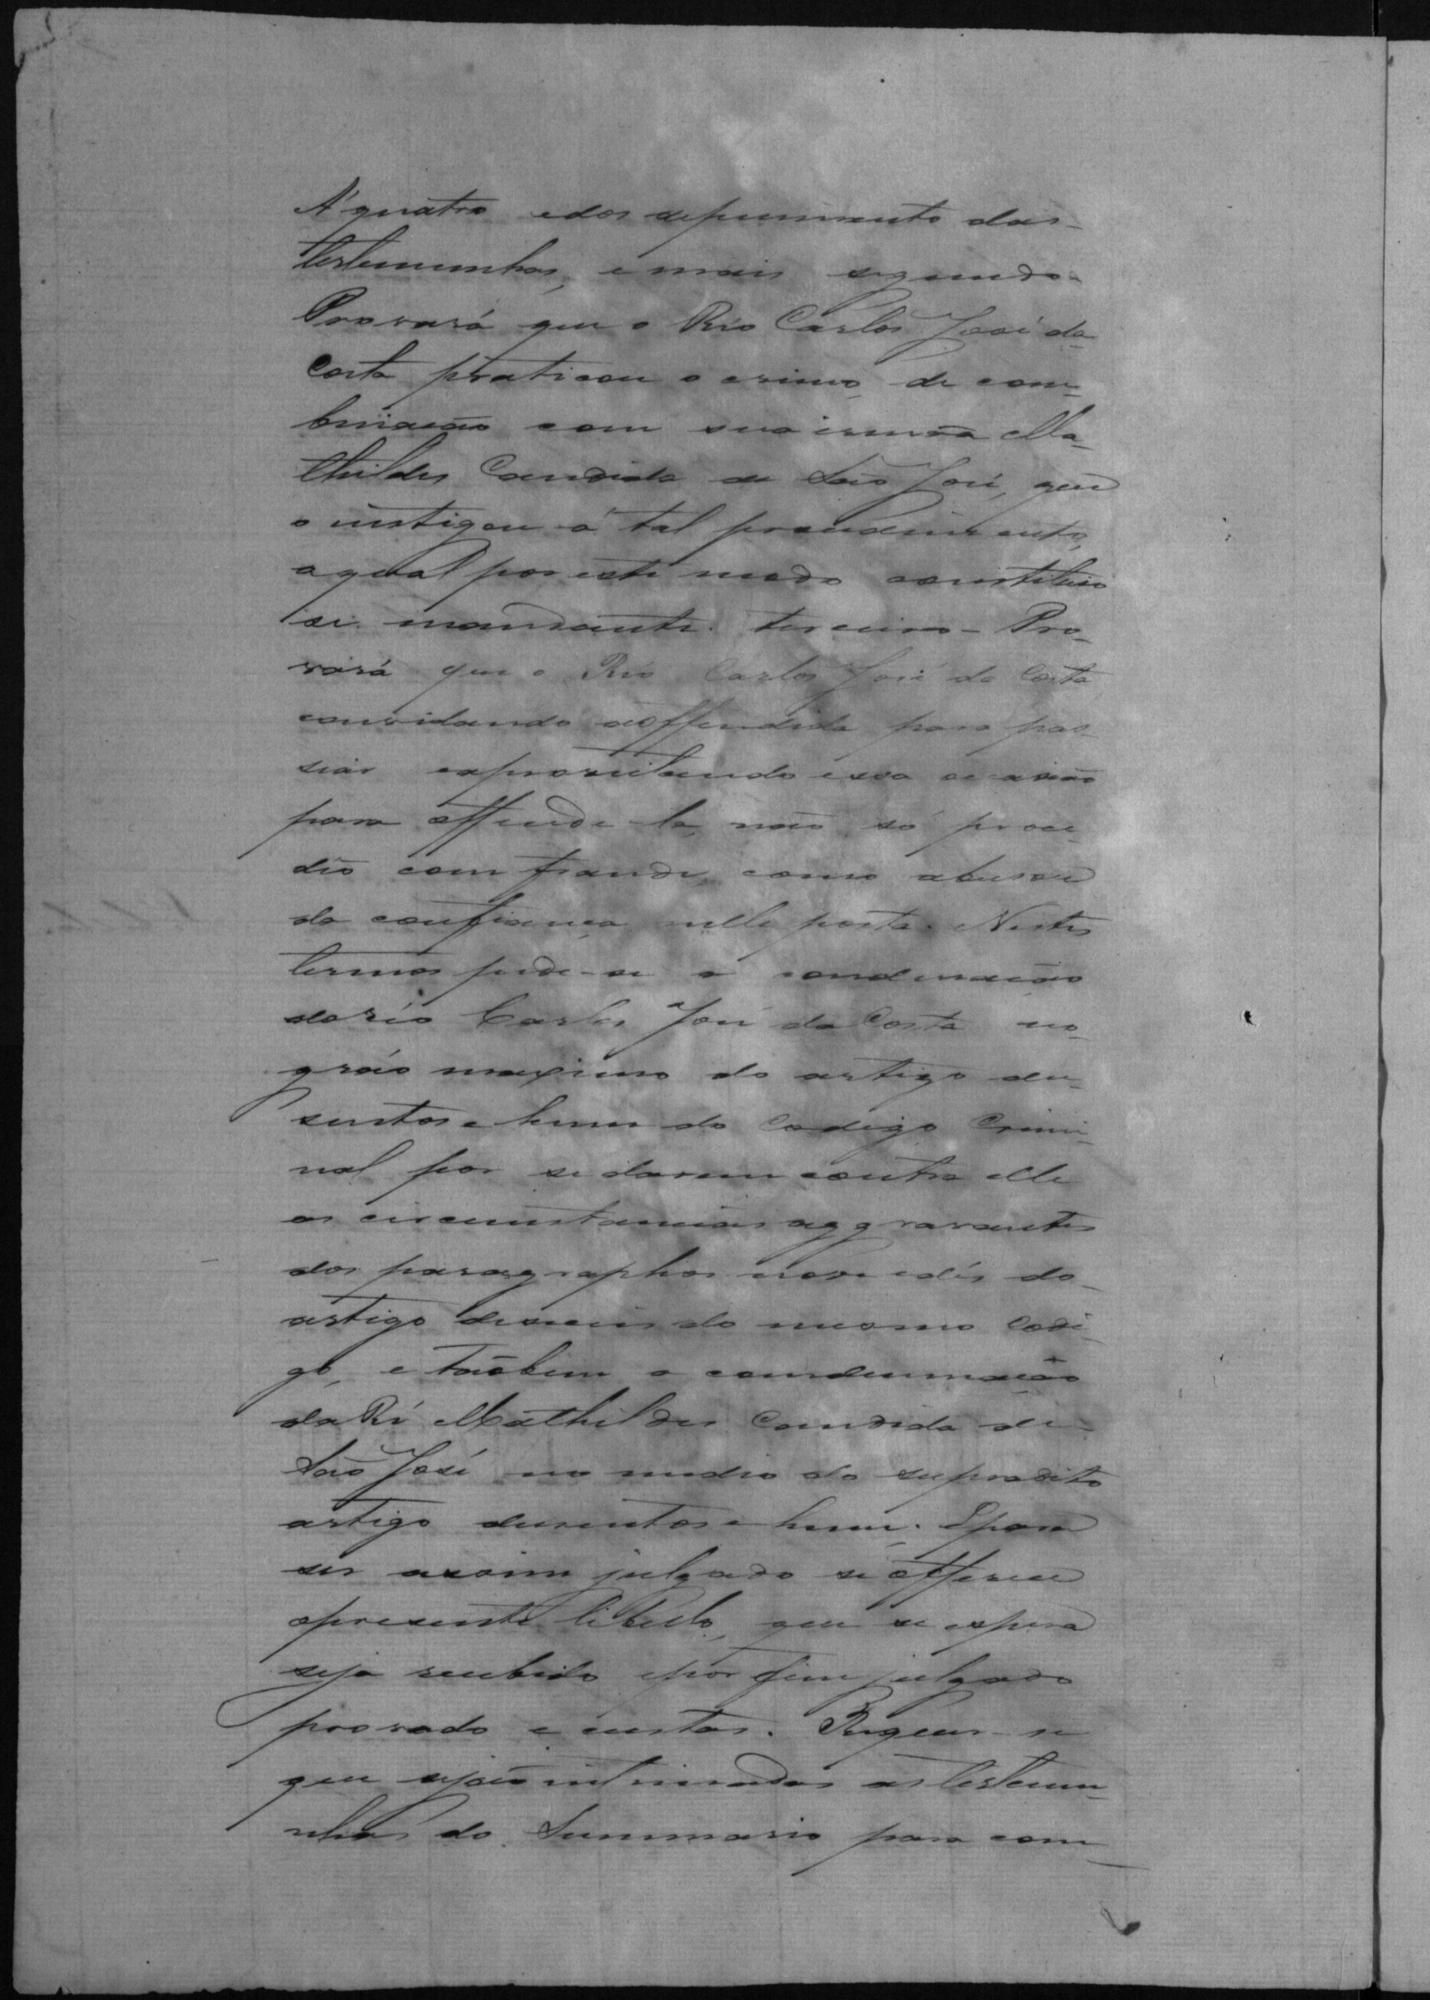 A quatro e dos depuimento das
testemunhas, e mais segundo -
Provará que o Reo Carlos José da
Costa praticou o crime de com-
binação com sua irmã Ma-
thildes Candida de São José, que
o instigou a tal procedimento,
a qual por este modo constituio
se mandante. terceiro - Pro-
vará que o Reo Carlos José da Costa
convidando a offendida para pas-
siar e aproveitando essa occasião
para offende la, não só proce-
deo com fraude, como abusou
da confiança nelle posta. Nestes
termos pede-se a condenação
do réo Carlos José da Costa no
gráo maximo do artigo du-
sentos e hum do Codigo Crimi-
nal por se darem contra elle
as circumstancias aggravantes
dos paragraphos nove e dés do
artigo deseseis do mesmo Codi-
go, e tãobem a condemnação
da Ré Mathildes Candida de
São José no medio do supradito
artigo dusentos e hum. E para
ser assim julgado se offerece
o presente libello, que se espera
seja recebido e por fim julgado
provado e custas. Requer-se
que sejão intimadas as testemu-
nhas do Summario para com-